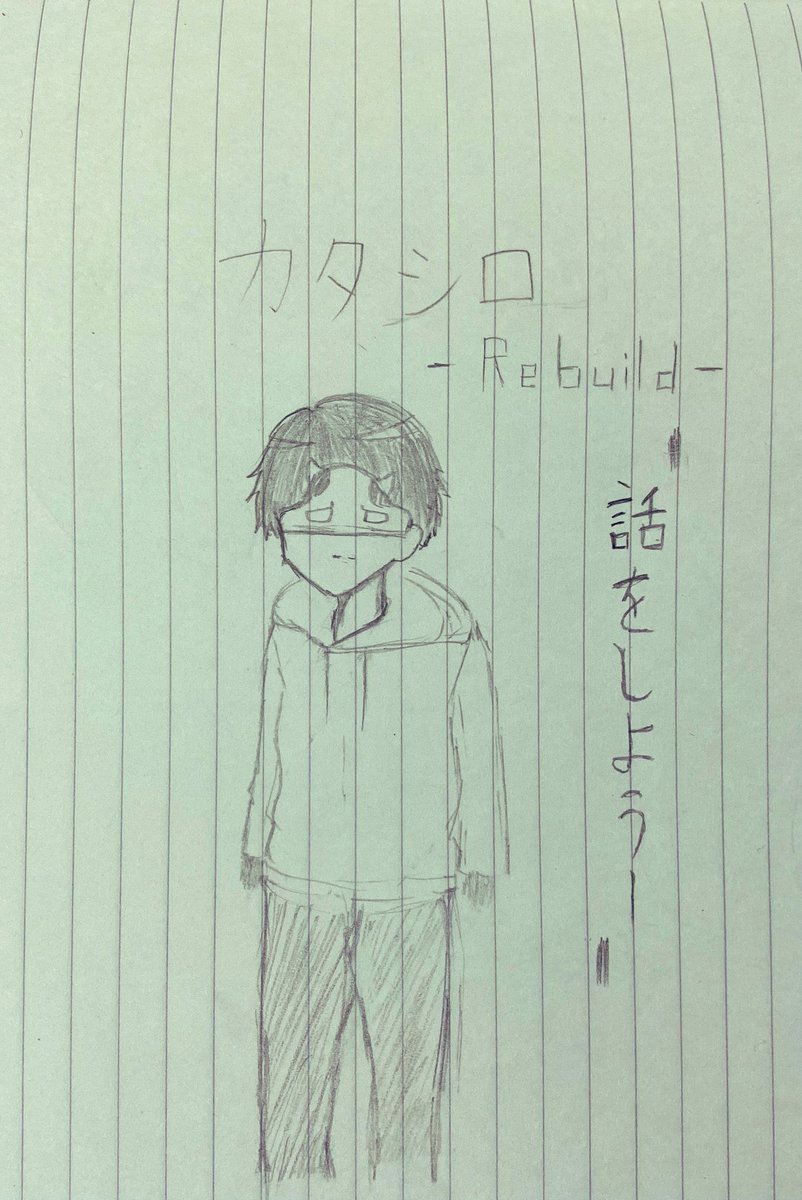 カタシロ
- Rebuild -
話をしよう